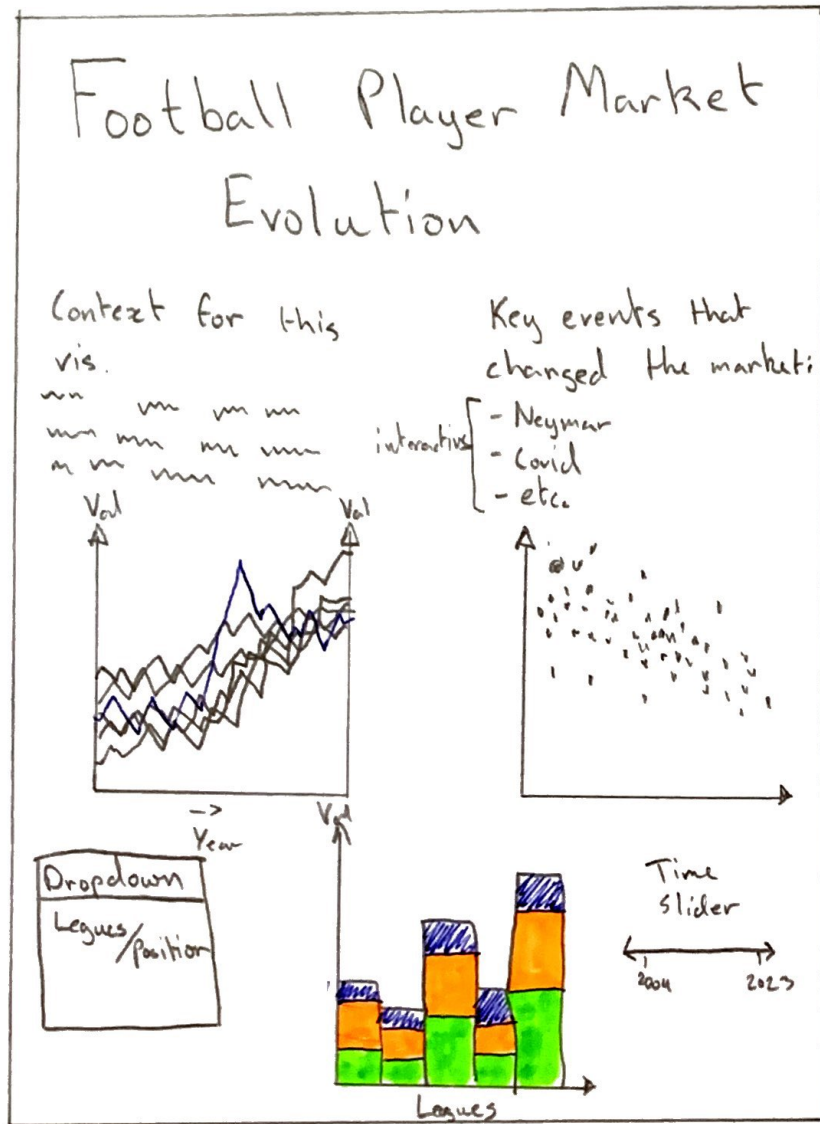 Football Player Market
Evolution
Context for this
vis.
Key events that
changed the market:
interactive
- Neymar
- Covid
- etc.
Val
Val
->
Year
Dropdown
Legues/position
Val
Legues
Time
slider
2004
2023